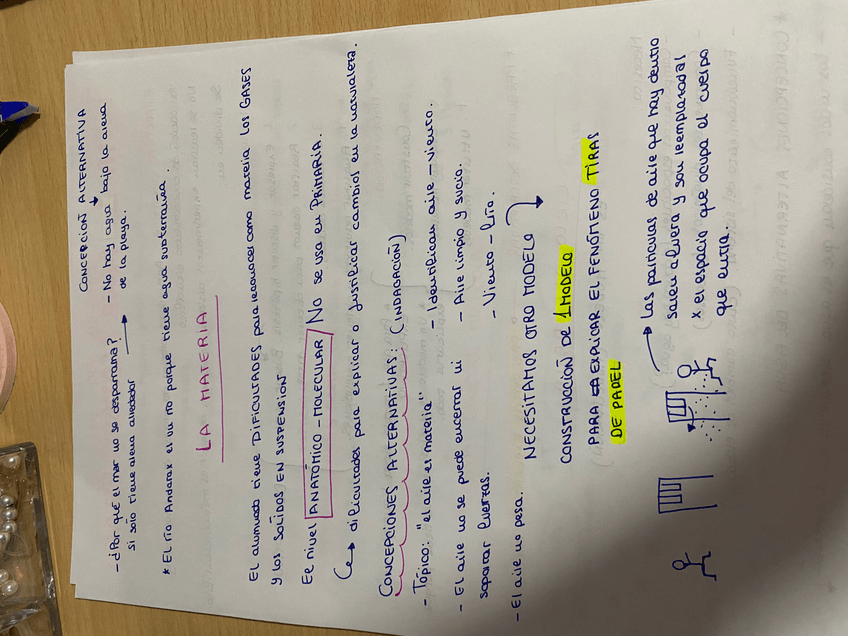 CONCEPCIÓN ALTERNATIVA
- ¿Por qué el mar no se desparrama? - No hay agua bajo la arena
si solo tiene arena alrededor → de la playa.
* El río Andarax es un río porque tiene agua subterránea.
LA MATERIA
El alumnado tiene DIFICULTADES para reconocer como materia los GASES
y los SÓLIDOS EN SUSPENSIÓN
El nivel ANATÓMICO-MOLECULAR No se usa en PRIMARIA.
↳ dificultades para explicar o justificar cambios en la naturaleza.
CONCEPCIONES ALTERNATIVAS: (INDAGACIÓN)
- Tópico: "el aire es materia" - Identifican aire - viento.
- El aire no se puede encerrar ni - Aire limpio y sucio.
soportar fuerzas. - Viento - frío.
- El aire no pesa.
NECESITAMOS OTRO MODELO
CONSTRUCCIÓN DE 1 MODELO
PARA EXPLICAR EL FENÓMENO TIRAS
DE PAPEL
→ Las partículas de aire que hay dentro
salen afuera y son reemplazadas
x el espacio que ocupa el cuerpo
que entra.